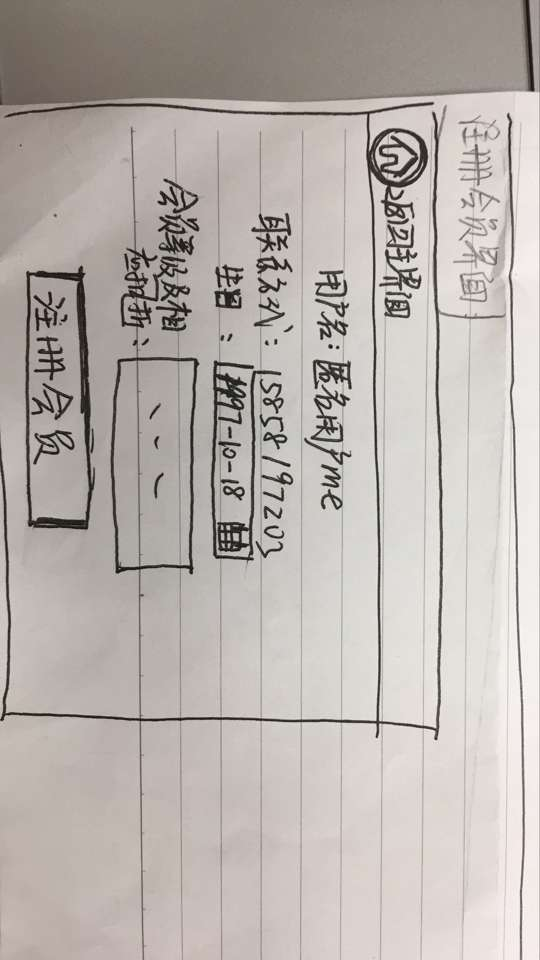 注册会员界面:
返回主界面
用户名：匿名用户me
联系方式：15858197203
生日：1997-10-18
会员等级及相
应折扣：
注册会员